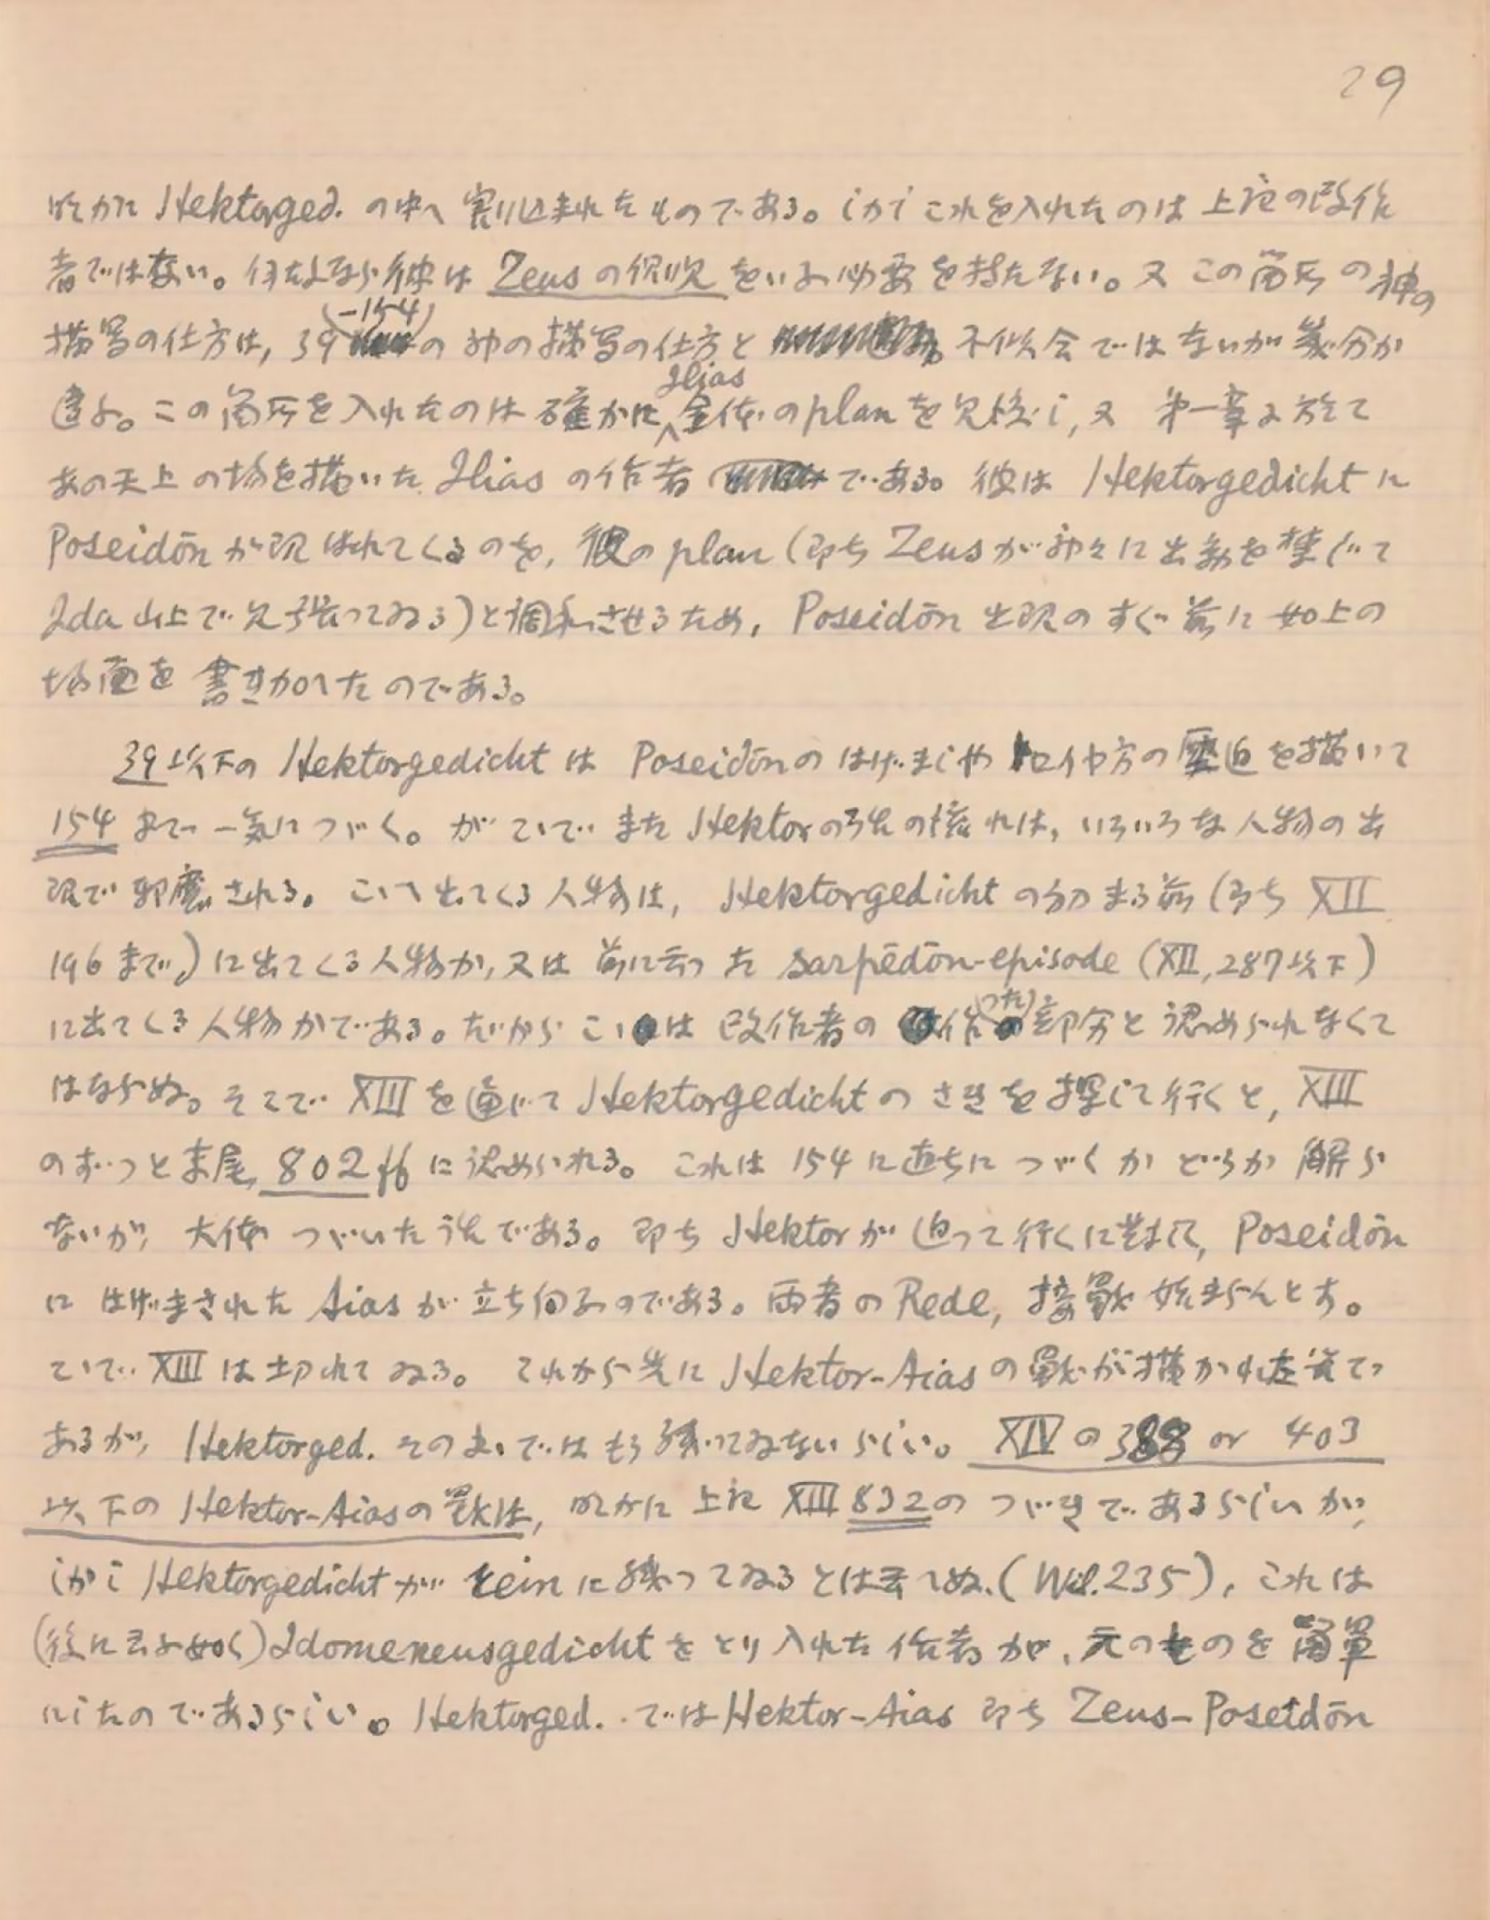 29
明かに Hektorged. の中へ割り込まれたものである。しかしこれを入れたのは上記の改作
者ではない。何故なら彼は Zeus の をいふ必要を持たない。又この箇所の神の
描写の仕方は, 39(-154)の神の描写の仕方と 不似合ではないが幾分か
違ふ。この箇所を入れたのは確かに Ilias 全体の plan を 又第一章に於て
あの天上の場を描いた Ilias の作者である。彼は Hektorgedicht に
Poseidōn が現はれてくるのを, 彼の plan (即ち Zeus が神々に出動を禁じて
Ida 山上で見張ってゐる)と調和させるため, Poseidōn 出現のすぐ前に如上の
場面を書き加へたのである。
39以下の Hektorgedicht は Poseidōn のはげましやトロイ方の壓迫を描いて
154 まで一気につゞく。がこゝでまた Hektor の は, いろいろな人物の出
現で邪魔される。こゝへ出てくる人物は, Hektorgedicht の初まる前(即ち XII
196まで)に出てくる人物か, 又は前に云った Sarpēdōn-episode (XII, 287以下)
に出てくる人物かである。だからこゝは改作者の作った部分と認められなくて
はならぬ。そこで XIII を通じて Hektorgedicht のさきを探して行くと, XIII
のずっと末尾, 802 ff に認められる。これは 154 に直ちにつゞくかどうか解ら
ないが, 大体つゞいたものである。即ち Hektor が迫って行くに対して, Poseidōn
にはげまされた Aias が立ち向ふのである。両者の Rede, 接戰始まらんとす。
こゝで XIII は切れてゐる。これから先に Hektor-Aias の戰が描かれた筈で
あるが, Hektorged. そのまゝではもう残ってゐないらしい。XIV の 388 or 403
以下の Hektor-Aias の戰は, 明かに上記 XIII 832 のつゞきであるらしいが,
しかし Hektorgedicht が rein に残ってゐるとは云へぬ (Wil. 235), これは
(後に云ふ如く) Idomeneusgedicht をとり入れた作者が, 元のものを簡單
にしたのであるらしい。Hektorged. では Hektor-Aias 即ち Zeus-Poseidōn